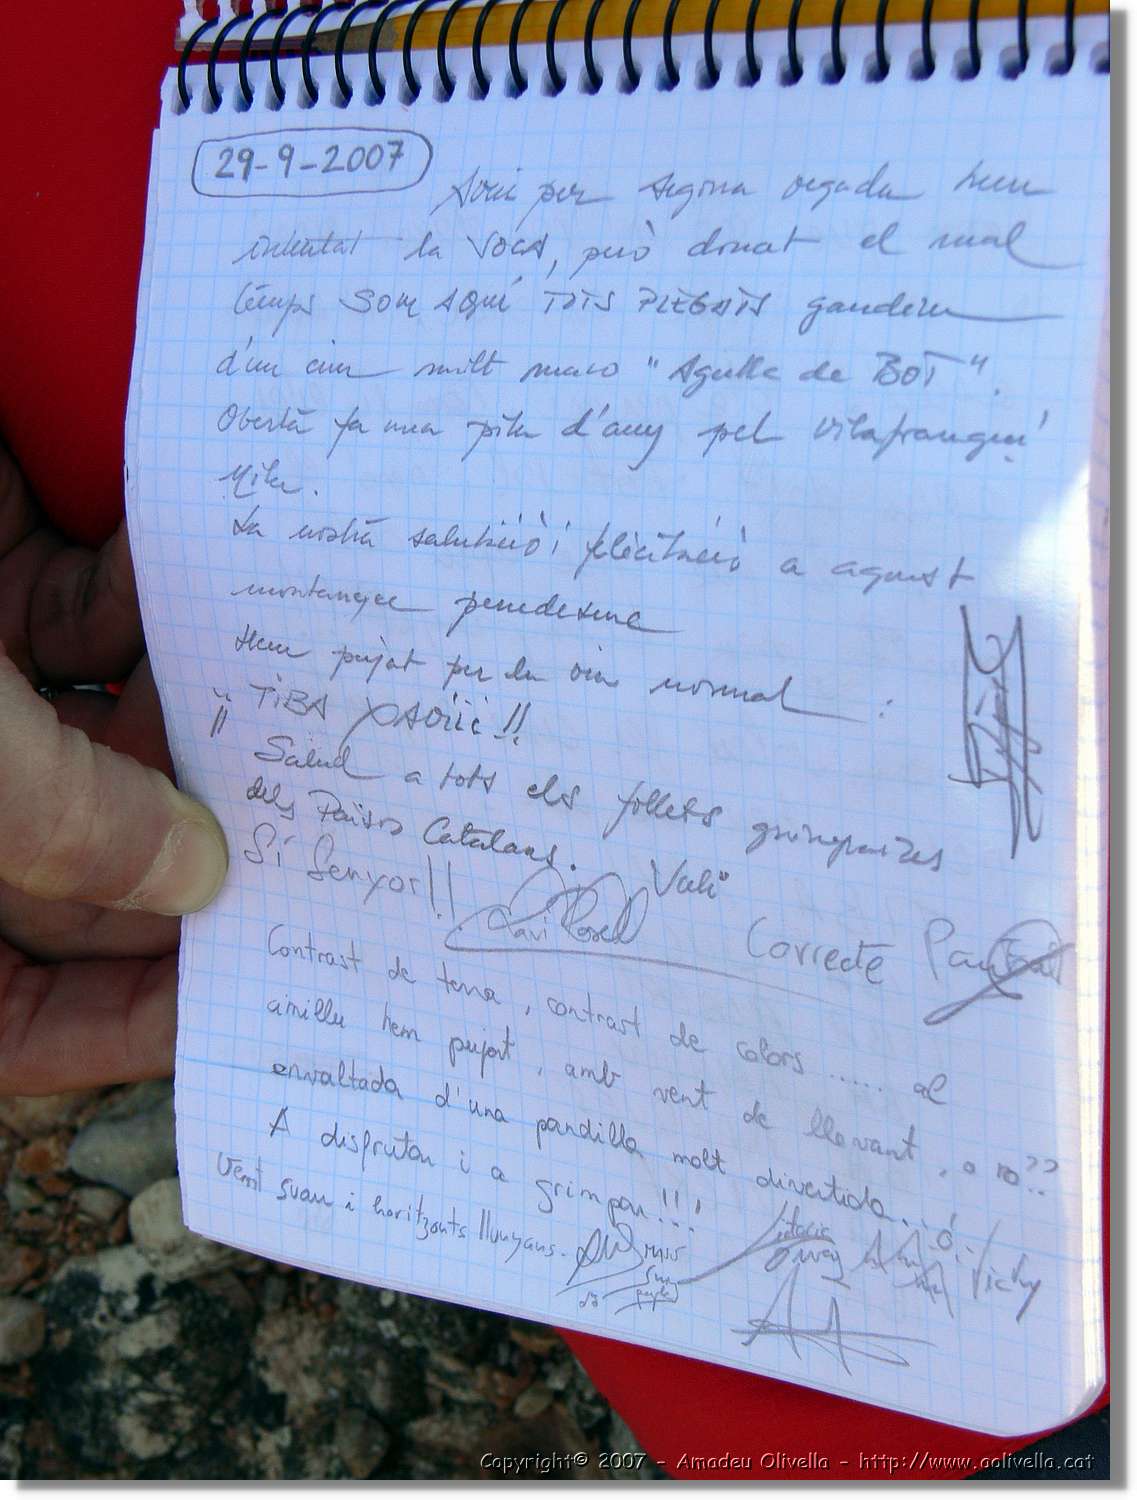 29-9-2007
Avui per segona vegada hem
intentat la VOCA, però donat el mal
temps SOM AQUÍ TOTS PLEGATS gaudim
d'un cim molt maco "Agulla de BOT".
Oberta fa una pila d'any pel vilafranquí
Mila.
La nostra salutació i felicitació a aquest
muntanyec penedesenc
Hem pujat per la via normal :
"TIBA PAVIL!!
Salud a tots els follets grimpaires
dels Països Catalans.
Sí Senyor!!
Xavi Rosell
Correcte Pau
Contrast de terra, contrast de colors ..... al
cimillu hem pujat, amb vent de llevant, o no??
envaltada d'una pandilla molt divertida...
A disfrutar i a grimpar!!!
Vent suau i horitzonts llunyans.
Vichy
Copyright© 2007 - Amadeu Olivella - http://www.aolivella.cat